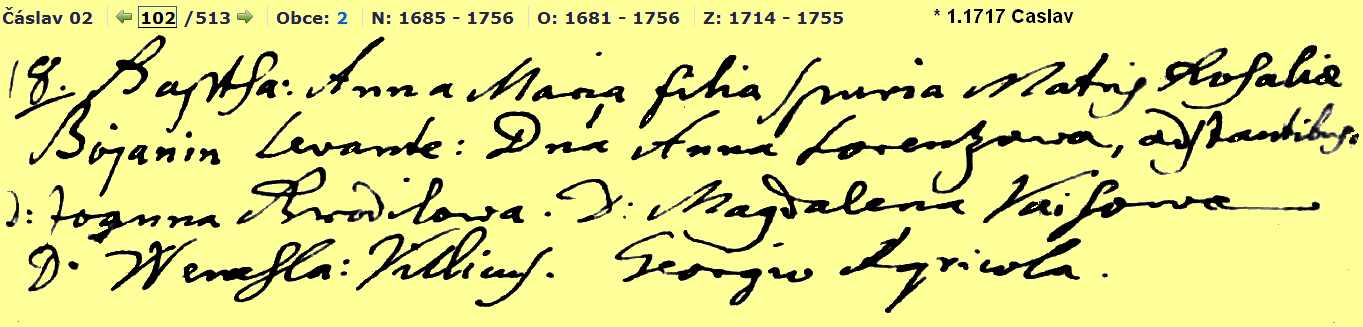 Čáslav 02 102 /513 Obce: 2 N: 1685 - 1756 O: 1681 - 1756 Z: 1714 - 1755 * 1.1717 Caslav
18. Baptsa: Anna Maria filia spuria Matris Rosaliæ
Bojanin Levante: Dna Anna Lorenzowa, adstantibus.
D: Joanna Brodilowa. D: Magdalena Vaisowa
D. Wenesla: Villicus. Georgio Agricola.